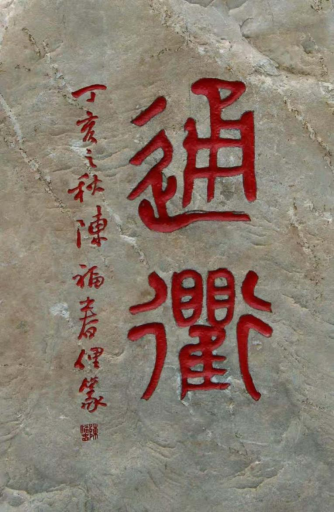 通衢
丁亥之秋陳福春俚篆